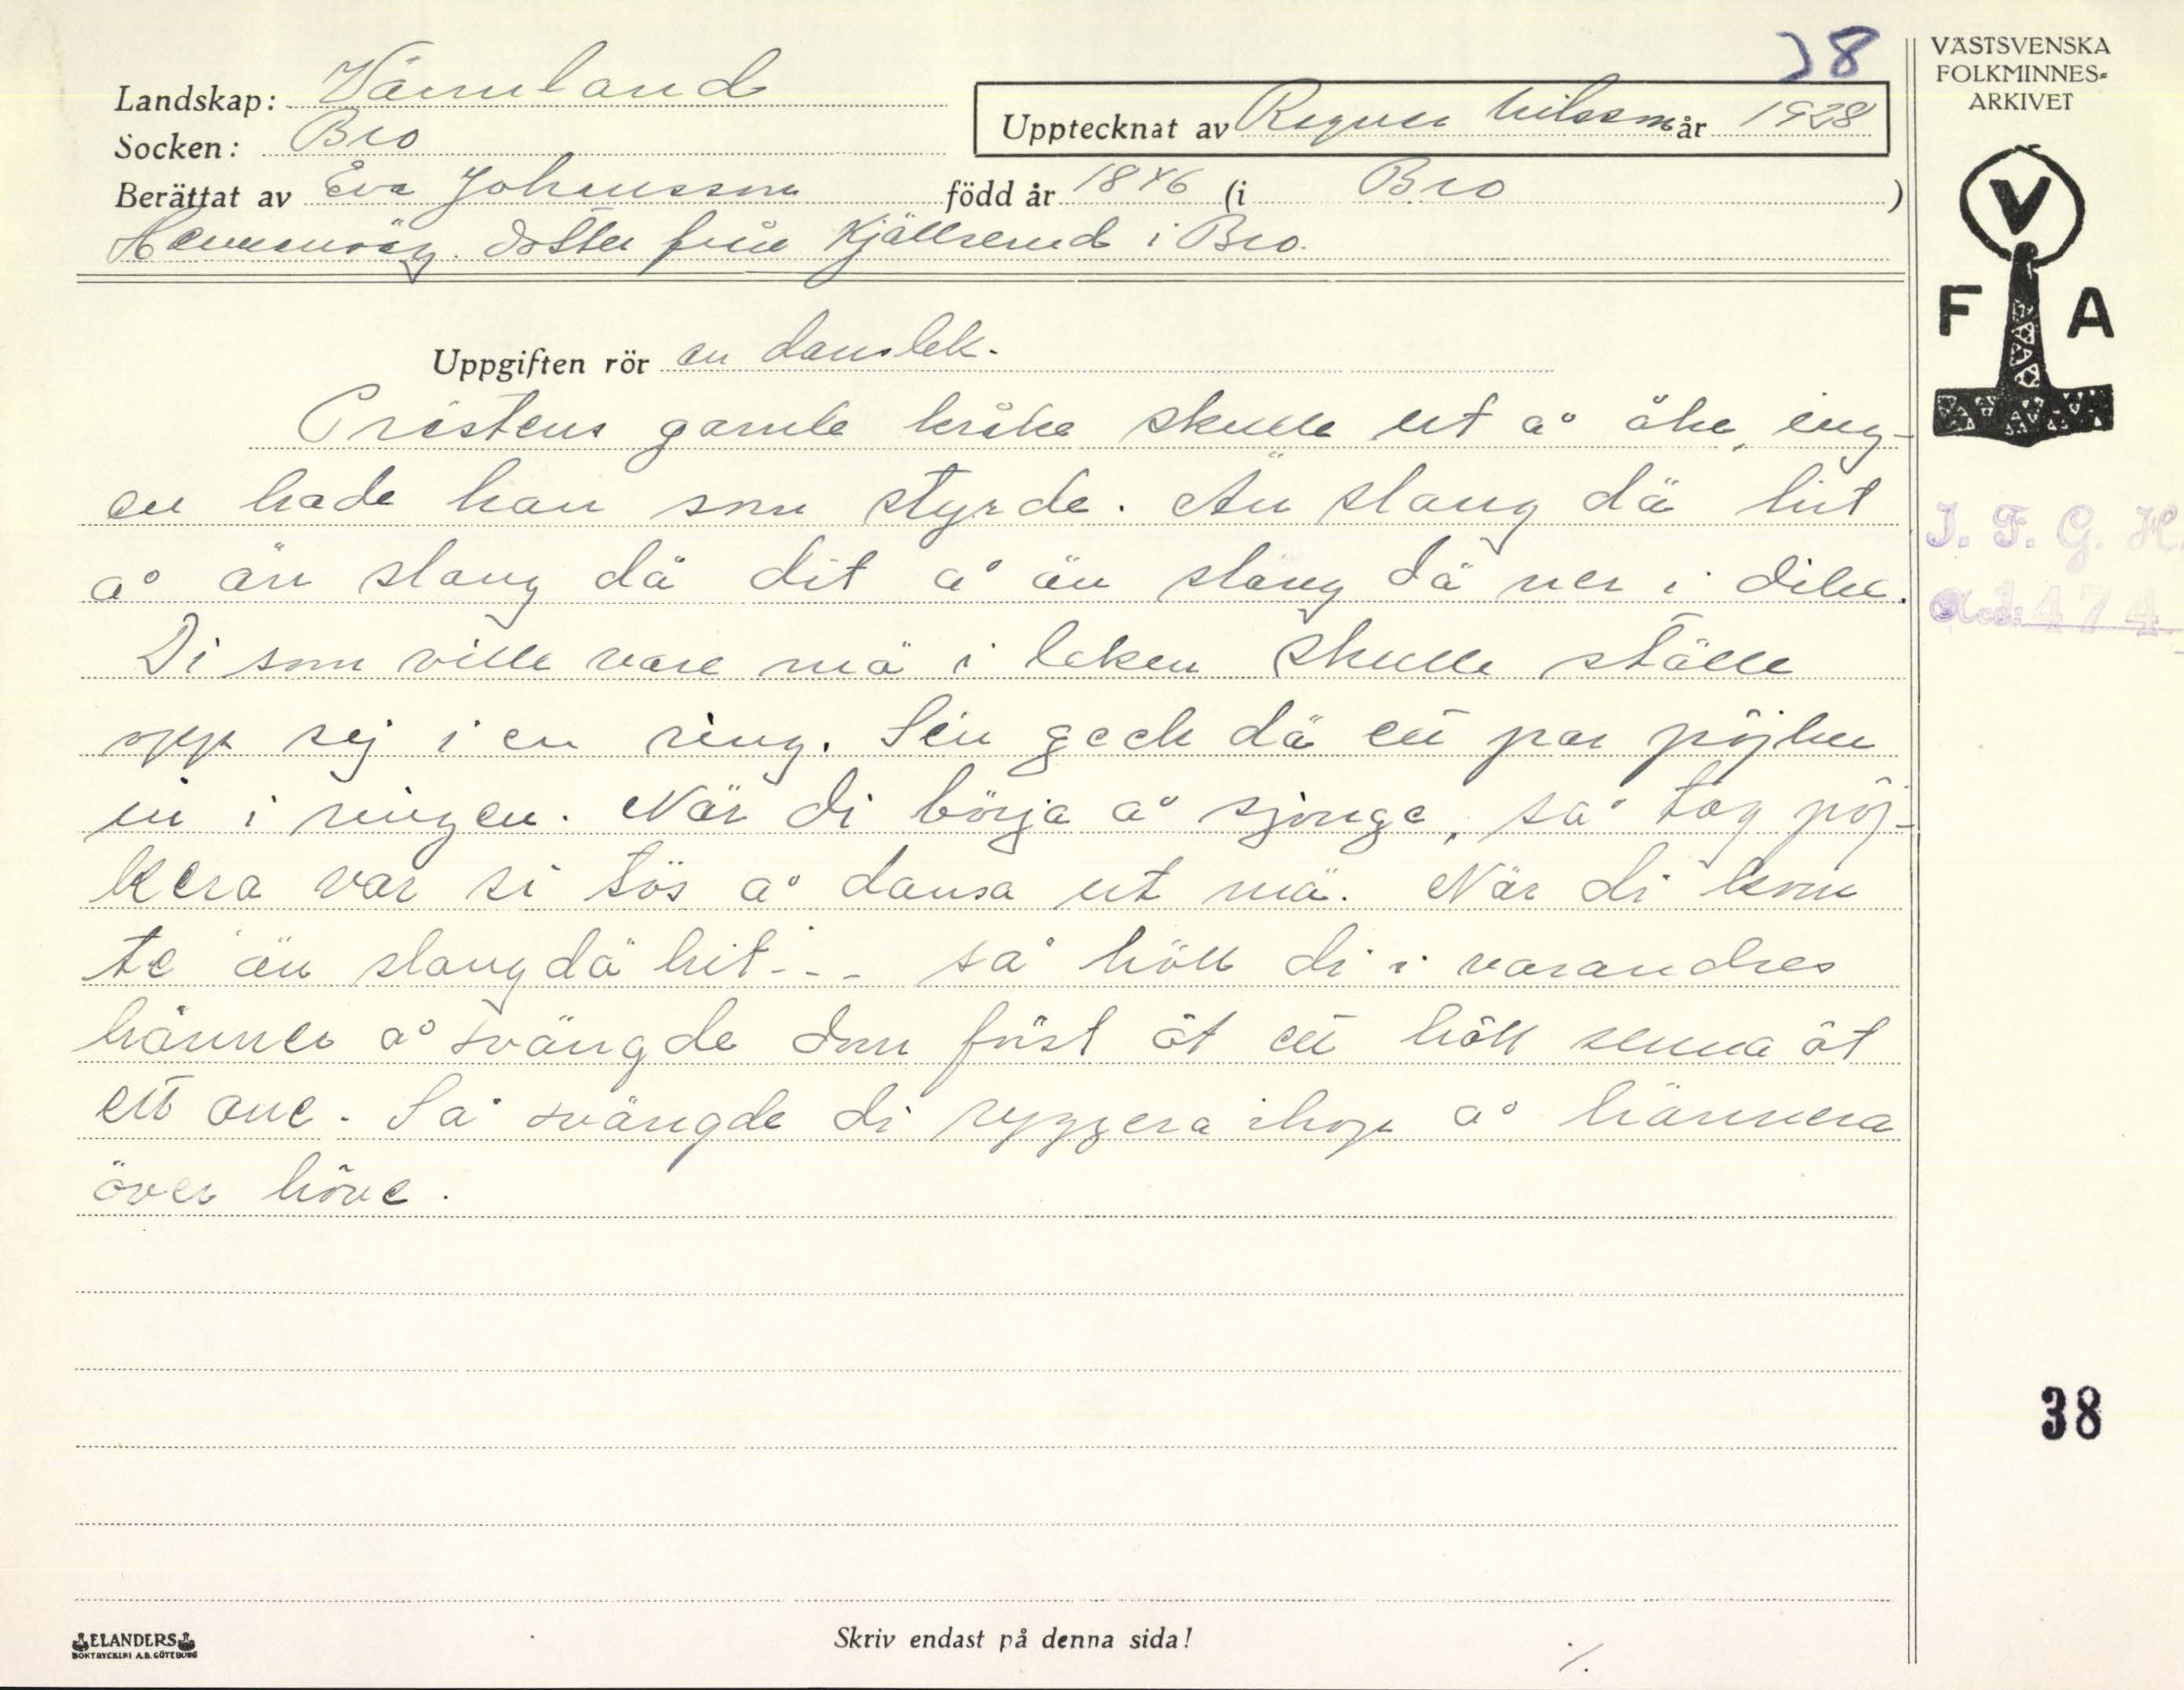 38
VÄSTSVENSKA
FOLKMINNES-
ARKIVET
Landskap: Värmland
Upptecknat av Ragnar Nilsson år 1928
Socken: Bro
Berättat av Eva Johansson född år 1846 (i Bro )
dotter från Kjällserud i Bro.
V
F A
Uppgiften rör en danslek.
Prästens gamle kråke skulle ut å åke, ing-
en hade han som styrde. Än slang dä hit
å än slang dä dit å än slang dä ner i dike.
I. F. G. H.
Acc. 1474
Di som ville vare mä i leken skulle ställe
opp sej i en ring. Sen geck dä ett par pöjker
in i ringen. När di börja å sjonge, så tog pöj-
kera var si tös å dansa ut mä. När di kom
te "än slang dä hit - - - så höll di i varandres
hänner å svängde dom först åt ett håll senna åt
ett ane. Så svängde di ryggera ihop å hännera
över höve.
38
ELANDERS
BOKTRYCKERI A.B. GÖTEBORG
Skriv endast på denna sida!